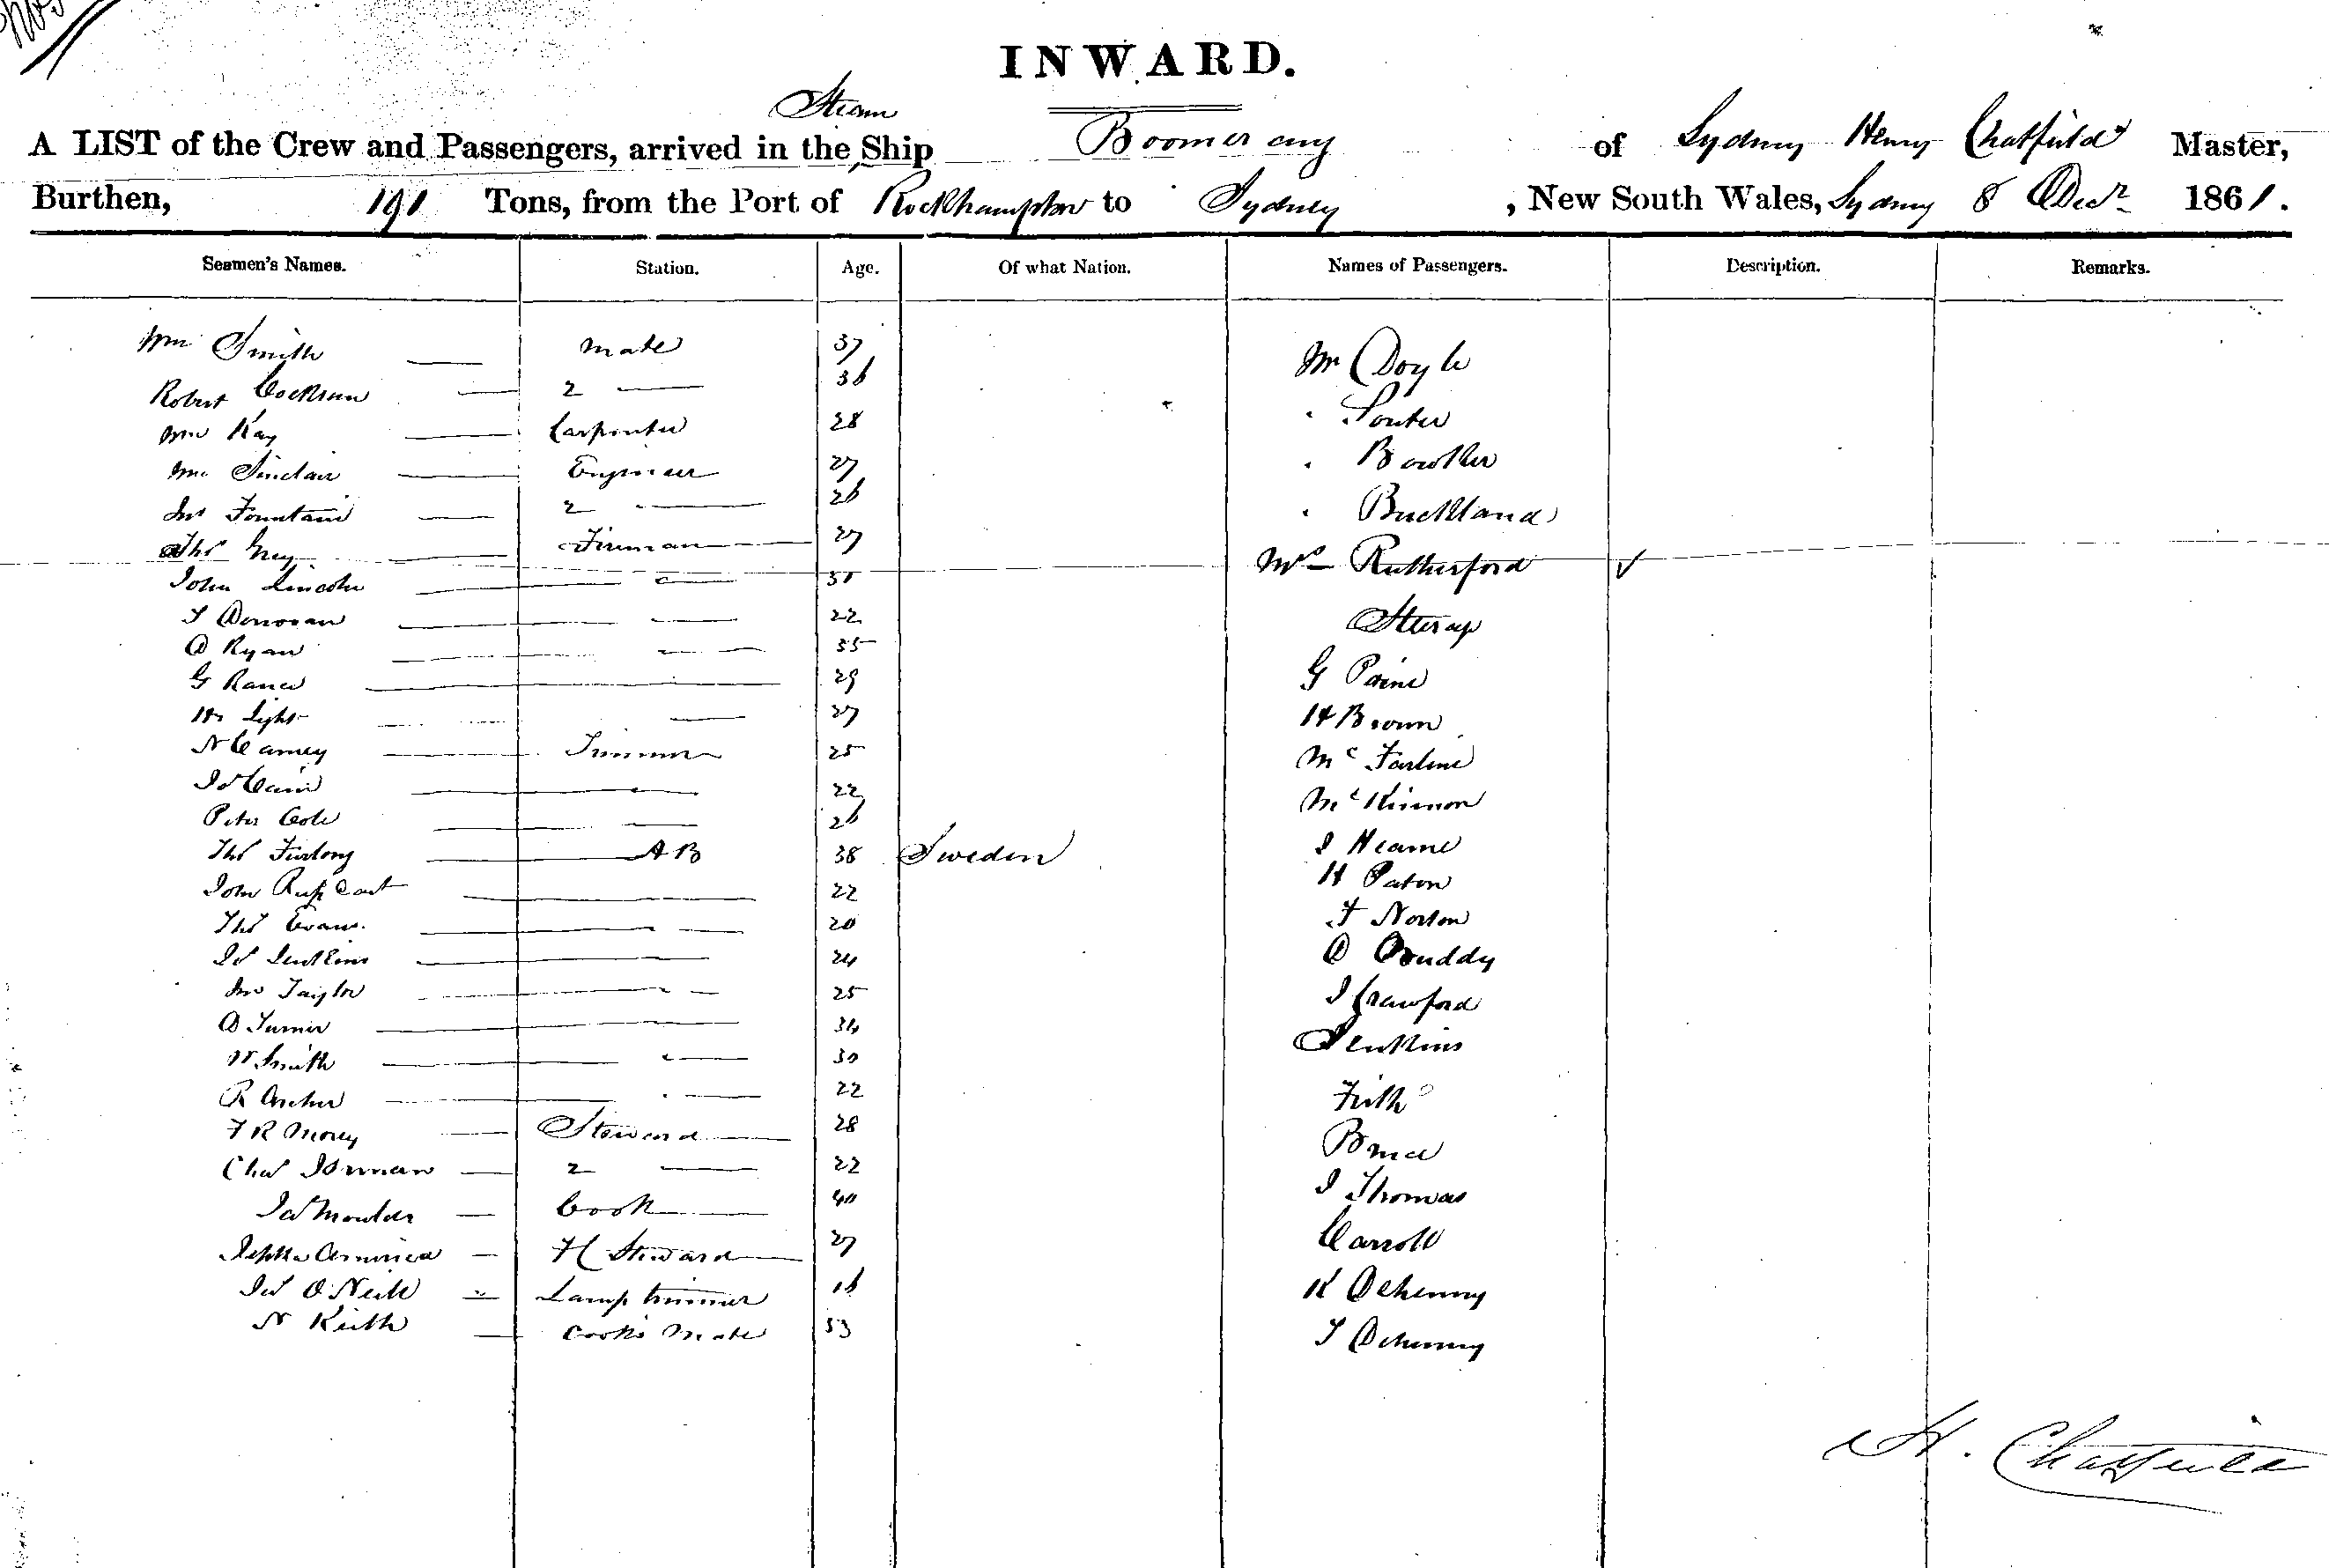 INWARD.
A LIST of the Crew and Passengers, arrived in the Steam Ship Boomerang of Sydney Henry Chatfield Master,
Burthen, 191 Tons, from the Port of Rockhampton to Sydney, New South Wales, Sydney 8 Decr 1861.
Seamen's Names. Station. Age. Of what Nation. Names of Passengers. Description. Remarks.
Wm Smith — Mate 37 Mr Doyle
Robert Cockran — 2 — 36 " Souter
Wm Kay — Carpenter 28 " Bowther
Wm Sinclair — Engineer 27 " Buckland
Jno Fountain — 2 — 26
Thos Grey — Fireman — 27 Mrs Rutherford ✓
John Lincoln — " —
T Donovan — — 22 Stirrup
D Ryan — " — 35
G Rance — 29 G Paine
Wm Light — — 27 H Brown
N Carney — Trimmer 25 Mc Farline
Js Cain — " — 22 Mc Kinnon
Peter Cole — — 26
Thos Furlong — AB 38 Sweden J Hearne
John — 22 H Paton
Thos Evans — — 20 F Norton
Js Jenkins — 24 D Cruddy
Jno Taylor — " — 25 J Crawford
D Turner — 34
W Smith — " — 30 Jenkins
R Archer — " — 22 Frith
F R Morey — Steward — 28 Bruce
Chas — 2 — 22
Jas Moulder — Cook — 40 J Thomas
— H Steward — 27 Carroll
Js O'Neill — Lamp trimmer 16 K Dehenny
N Keith — Cook's Mate 53 T Dehenny
H. Chatfield